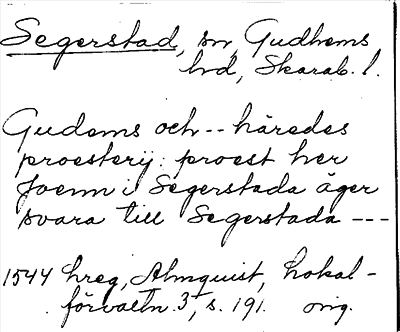 Segerstad, sn, Gudhems
hd, Skarab. l.
Gudems och -- häredes
proesterij: proest her
Joenn i Segerstada äger
svara till Segerstada ---
1544 hreg, Almquist, Lokal-
förvaltn. 3, s. 191. orig.